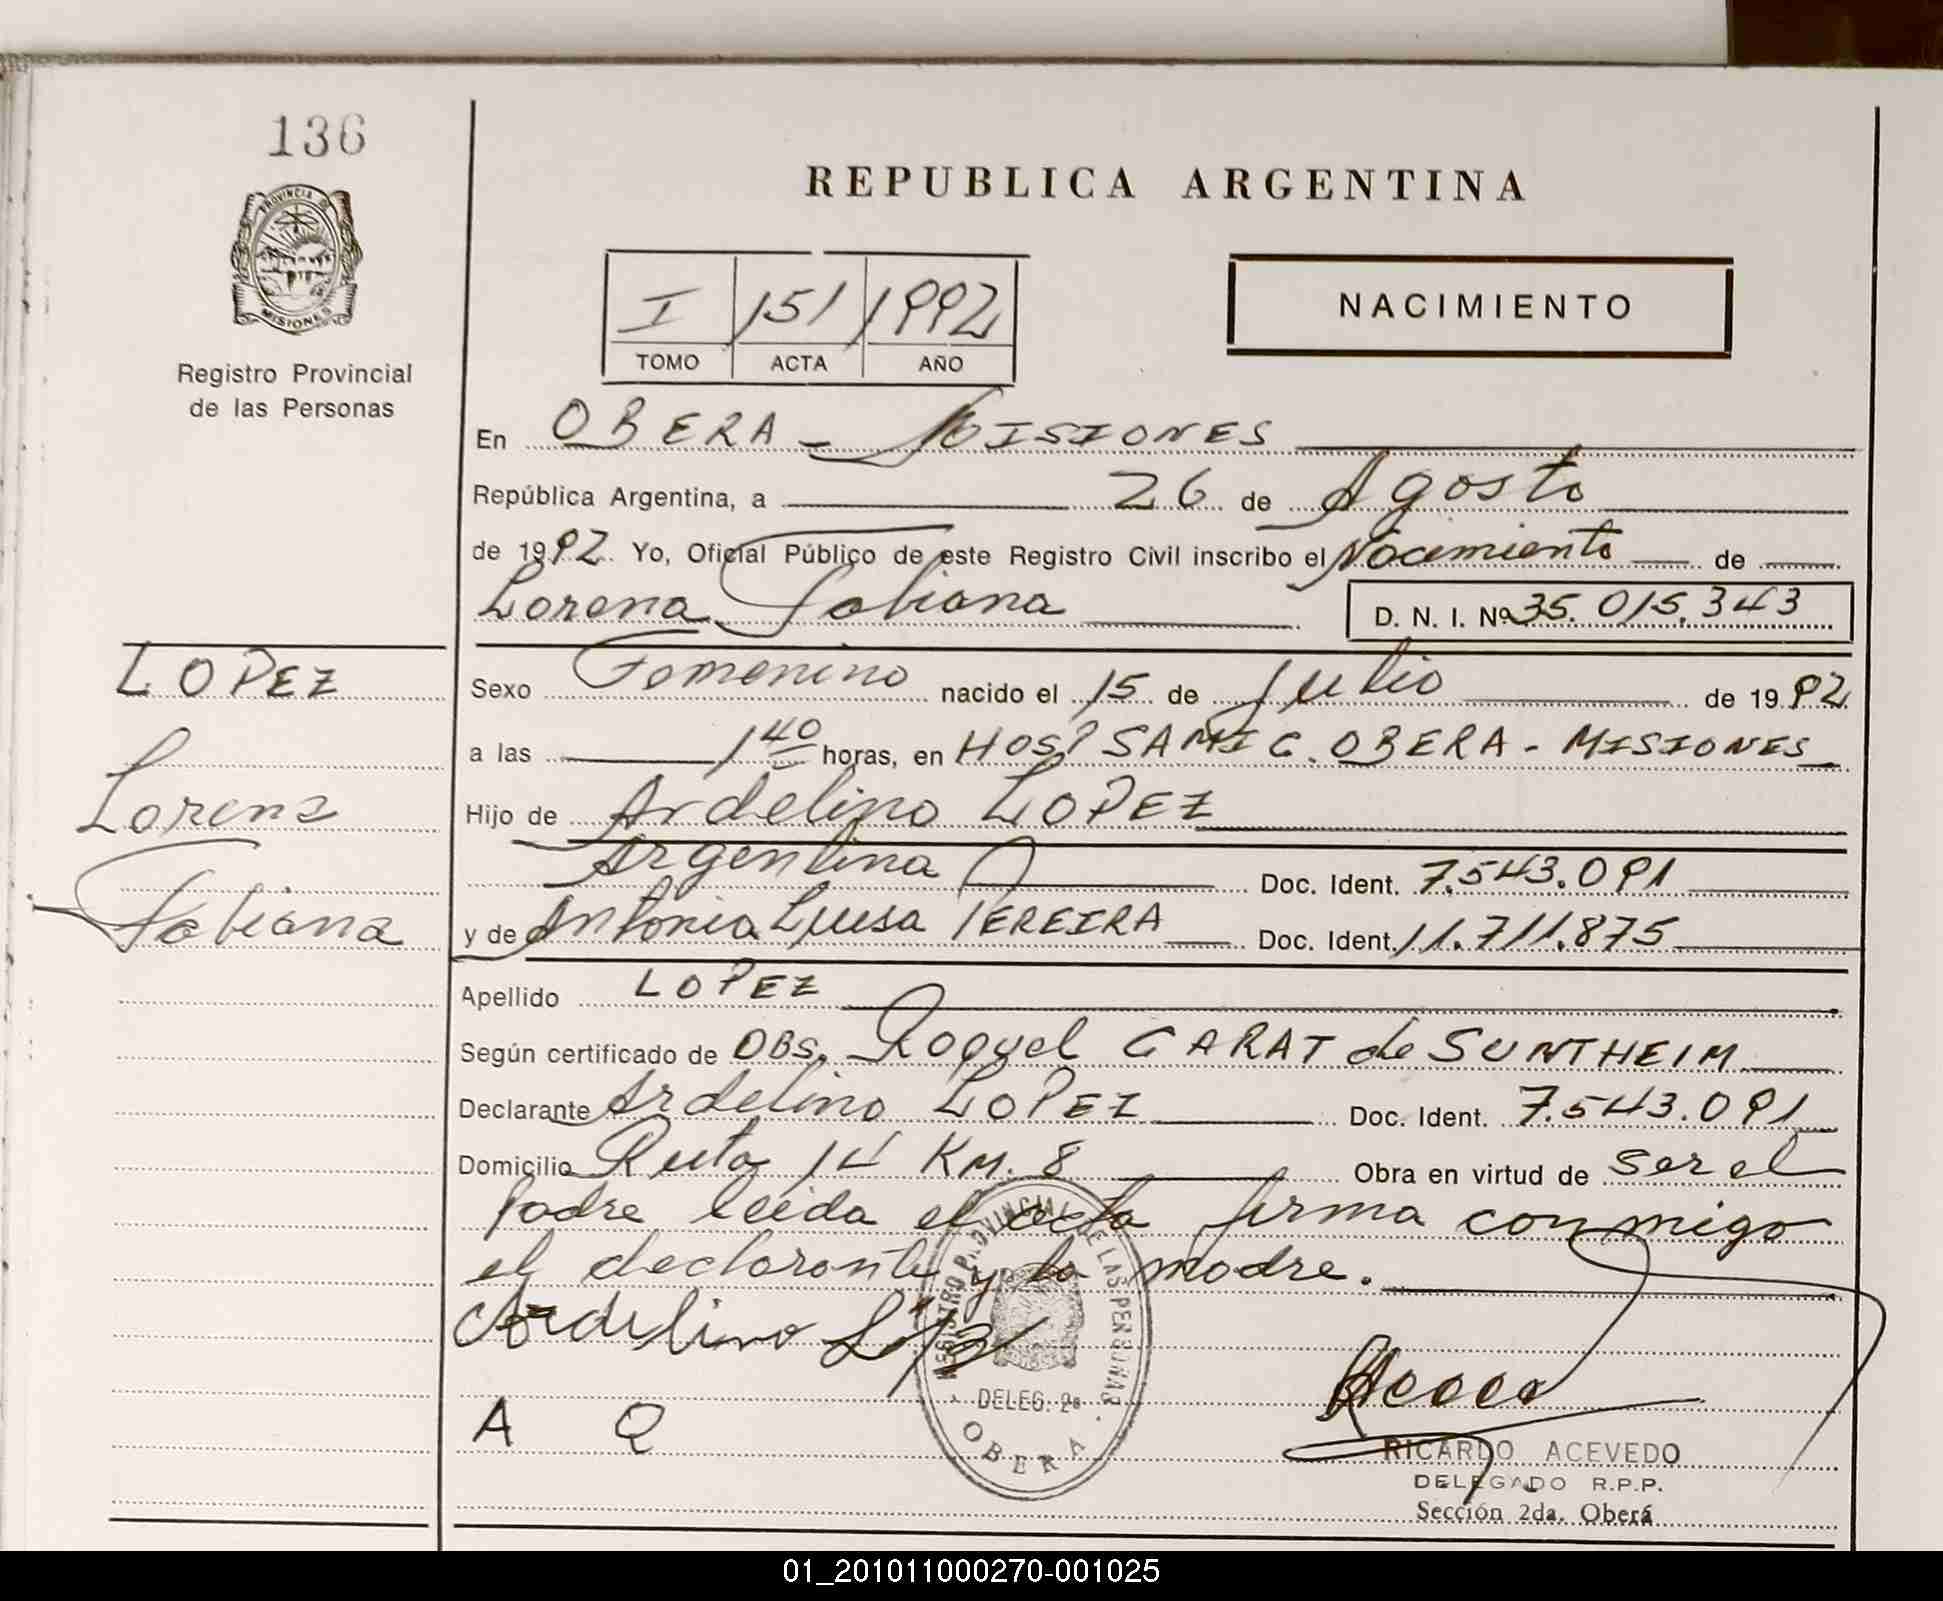 136
PROVINCIA DE
MISIONES
Registro Provincial
de las Personas
REPUBLICA ARGENTINA
I 151 1992
TOMO ACTA AÑO
NACIMIENTO
En OBERA - MISIONES
República Argentina, a 26 de Agosto
de 1992. Yo, Oficial Público de este Registro Civil inscribo el Nacimiento de
Lorena Fabiana D. N. I. Nº 35.015.343
LOPEZ
Lorena
Fabiana
Sexo Femenino nacido el 15 de Julio de 1992
a las 1 40 horas, en HOSP SAMIC. OBERA - MISIONES
Hijo de Ardelino LOPEZ
Argentina Doc. Ident. 7.543.091
y de Antonia Luisa PEREIRA Doc. Ident. 11.711.875
Apellido LOPEZ
Según certificado de OBS. Raquel GARAT de SUNTHEIM
Declarante Ardelino LOPEZ Doc. Ident. 7.543.091
Domicilio Ruta 14 KM. 8 Obra en virtud de ser el
padre leida el acta firma conmigo
el declarante y la madre.
Ardelino
REGISTRO PROVINCIAL DE LAS PERSONAS
DELEG. 2ª
OBERA
A Q
RICARDO ACEVEDO
DELEGADO R.P.P.
Sección 2da. Oberá
01_201011000270-001025